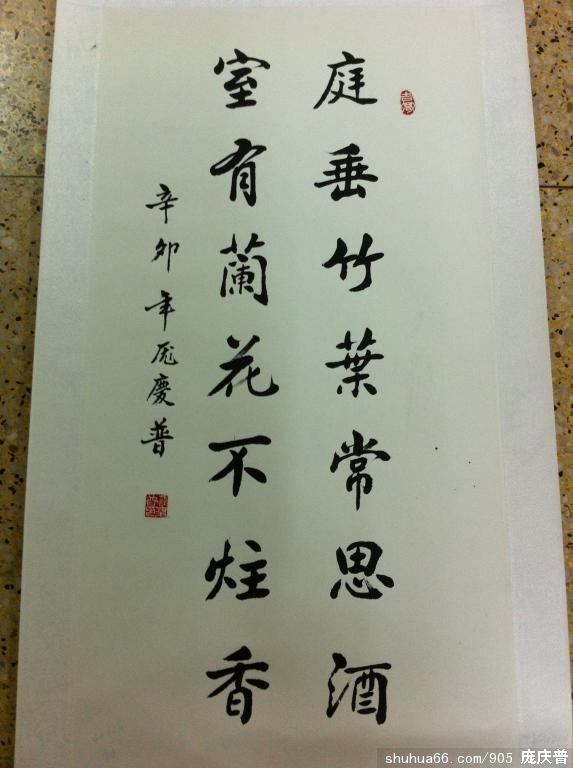 庭垂竹葉常思酒
室有蘭花不炷香
辛卯年庞慶普
shuhua66.com/905 庞庆普